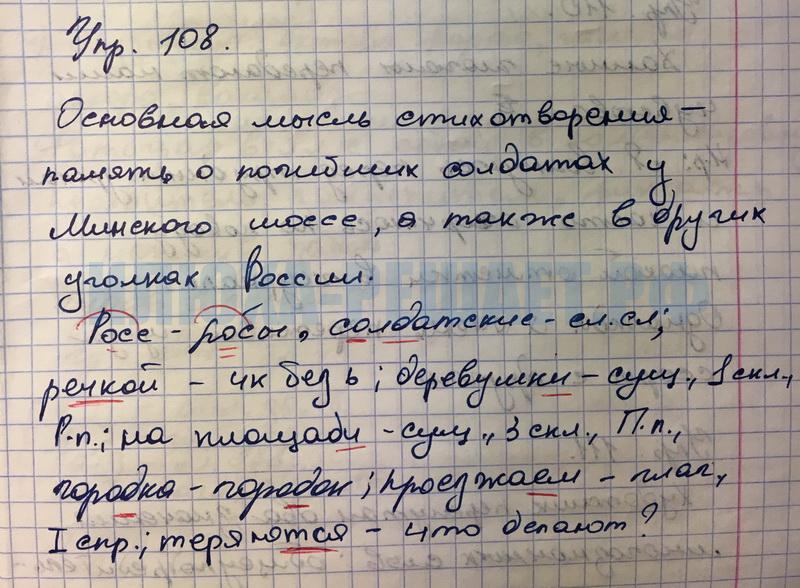 Упр. 108.
Основная мысль стихотворения –
память о погибших солдатах у
Минского шоссе, а также в других
уголках России.
Росе - росы, солдатские - сл.сл;
речкой - чк без ь; деревушки - сущ., 1 скл.,
Р.п.; на площади - сущ., 3 скл., П.п.,
городка - городок; проезжаем - глаг.,
I спр.; теряются - что делают?